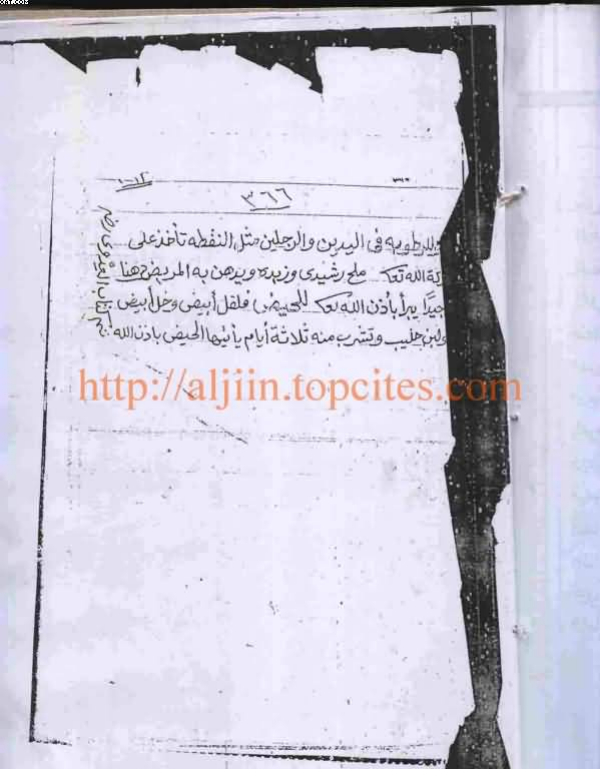 ٣٦٦
وللرطوبه فى اليدين والرجلين مثل النقطه تأخذ على
بركة الله تعـ ملح رشيدى وزبده ويدهن به المريض دهنا
جيدًا يبرأ بأذن الله تعـ للحيض فلفل أبيض وخل أبيض
ولبن حليب وتشرب منه ثلاثة أيام يأتيها الحيض باذن الله
تم كتاب
http://aljiin.topcites.com